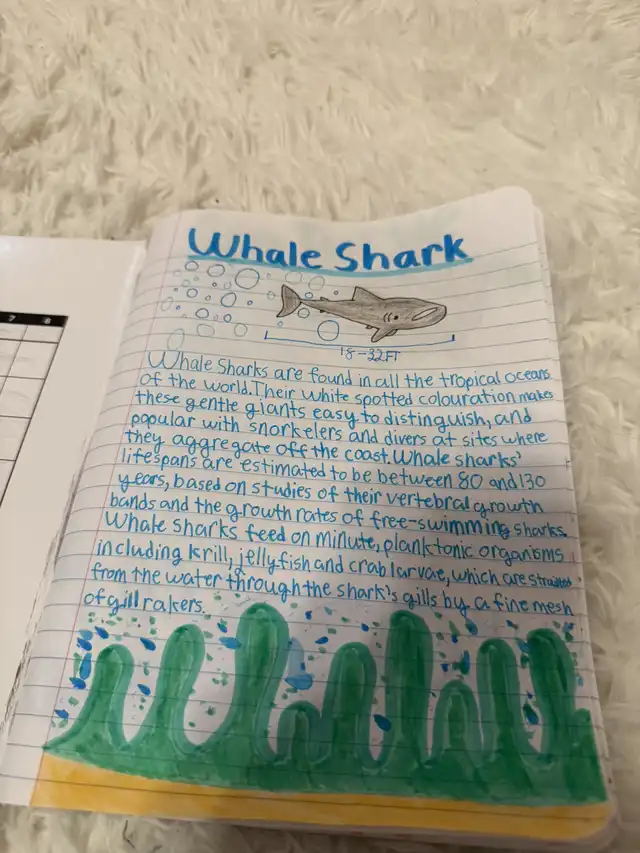 7 8
Whale Shark
18-32FT
Whale Sharks are found in all the tropical oceans
of the world. Their white spotted colouration makes
these gentle giants easy to distinguish, and
popular with snorkelers and divers at sites where
they aggregate off the coast. Whale sharks'
lifespans are estimated to be between 80 and 130
years, based on studies of their vertebral growth
bands and the growth rates of free-swimming sharks.
Whale Sharks feed on minute, planktonic organisms
including krill, jellyfish and crab larvae, which are strained
from the water through the shark's gills by a fine mesh
of gill rakers.